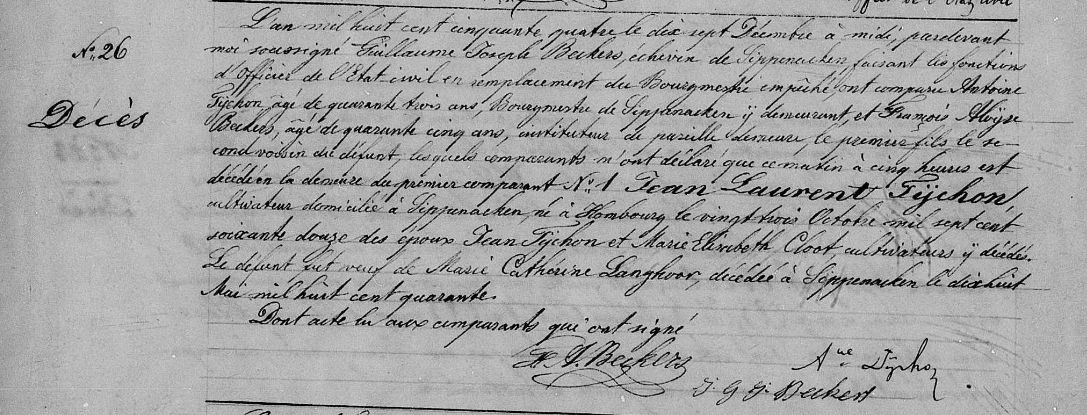 officier de l'Etat civil
L'an mil huit cent cinquante quatre le dix sept Décembre à midi, pardevant
No 26
moi soussigné Guillaume Joseph Beckers, échevin de Sippenaeken, faisant les fonctions
d'Officier de l'Etat-civil en remplacement du Bourgmestre empêché, ont comparu Antoine
Tijchon, âgé de quarante trois ans, Bourgmestre de Sippenaeken ij demeurant, et François Aloijse
Décès
Beckers, âgé de quarante cinq ans, instituteur de pareille demeure, le premier fils le se-
cond voisin du défunt, lesquels comparants m'ont déclaré que ce matin à cinq heures est
décédé en la demeure du premier comparant No 1 Jean Laurent Tijchon,
cultivateur domicilié à Sippenaeken, né à Hombourg le vingt trois Octobre mil sept cent
soixante douze des époux Jean Tijchon et Marie Elisabeth Cloot, cultivateurs ij décédés.
Le défunt fut veuf de Marie Cathérine Langhoor, décédée à Sippenaeken le dixhuit
Mai mil huit cent quarante.
Dont acte lu aux comparants qui ont signé
F. A. Beckers
Ane Tychon
G J Beckers